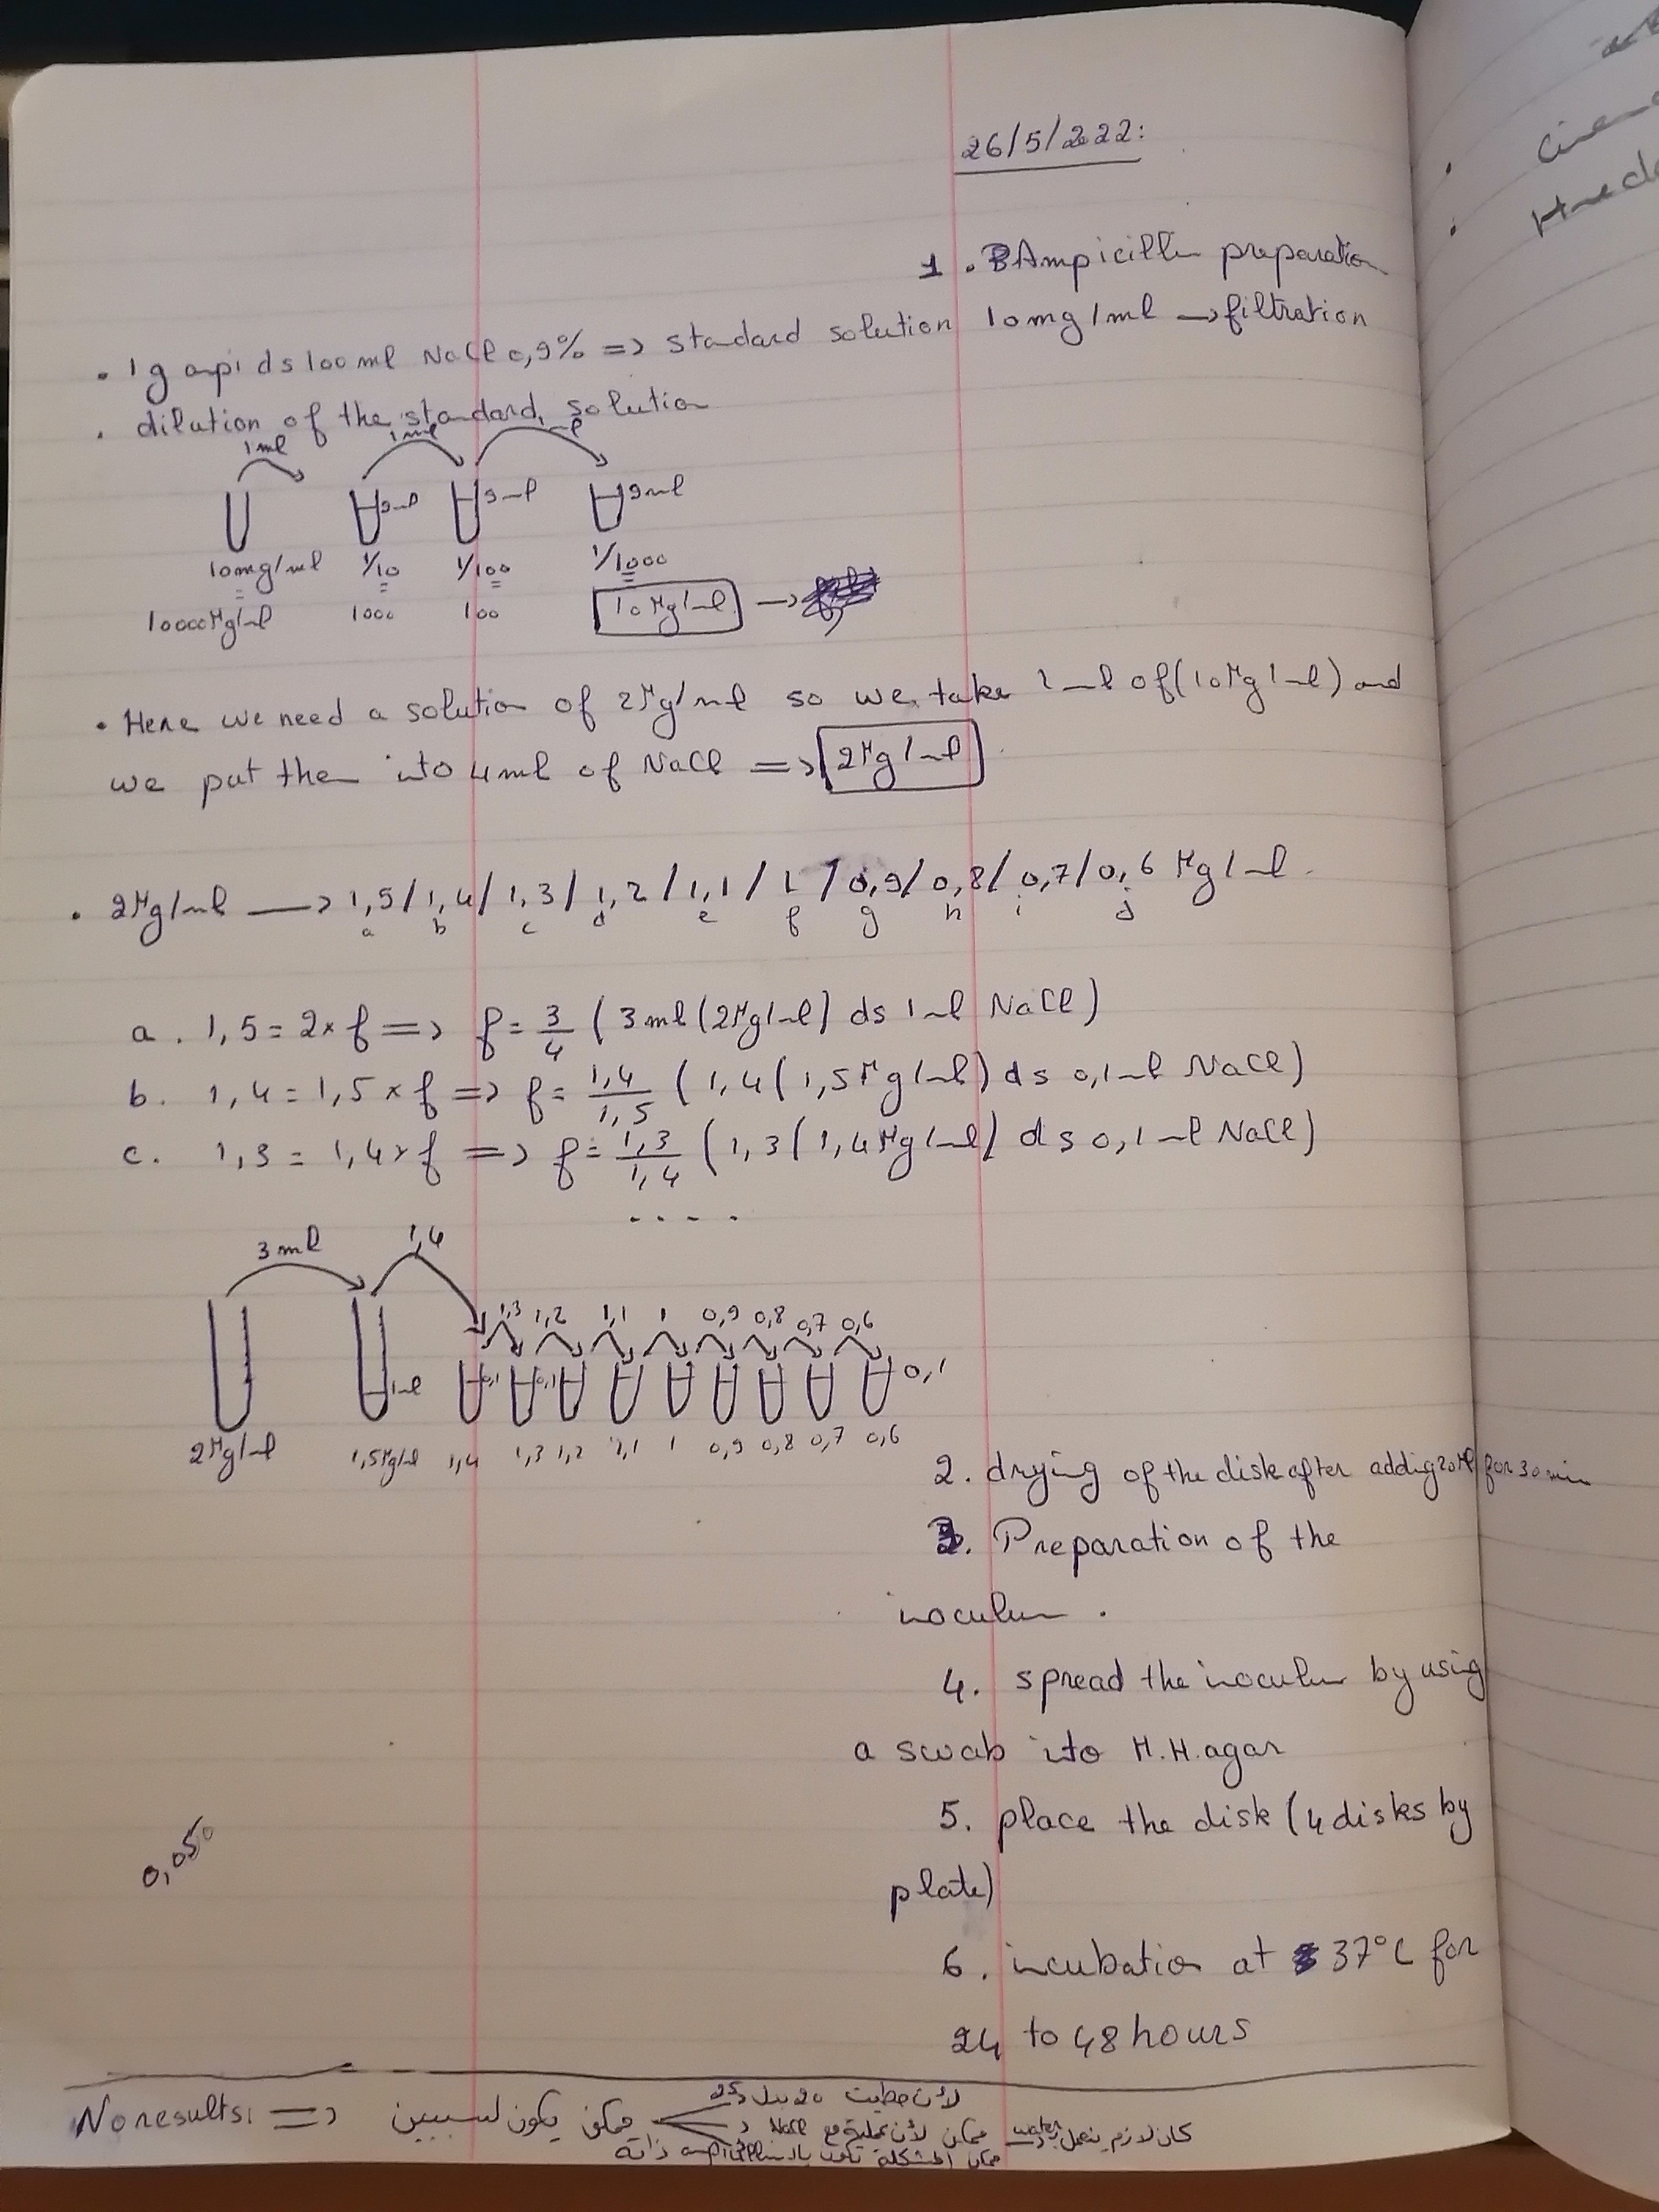 26/5/2022:
1. Ampicillin preparation
. 1g ampi ds 100 ml NaCl 0,9% => standard solution 10mg/ml → filtration
. dilution of the standard solution
1ml 1ml 1ml
9ml 9ml 9ml
10mg/ml 1/10 1/100 1/1000
10000 Mg/ml 1000 100 10 Mg/ml →
. Here we need a solution of 2Mg/ml so we take 1ml of (10Mg/ml) and
we put them into 4ml of NaCl => 2Mg/ml
. 2Mg/ml → 1,5/1,4/1,3/1,2/1,1/1/0,9/0,8/0,7/0,6 Mg/ml.
a b c d e f g h i j
a. 1,5 = 2 x f => f = 3/4 (3ml (2Mg/ml) ds 1ml NaCl)
b. 1,4 = 1,5 x f => f = 1,4/1,5 (1,4 (1,5Mg/ml) ds 0,1ml NaCl)
c. 1,3 = 1,4 x f => f = 1,3/1,4 (1,3 (1,4Mg/ml) ds 0,1ml NaCl)
....
3ml 1,4
1,3 1,2 1,1 1 0,9 0,8 0,7 0,6
1ml 0,1 0,1 0,1
2Mg/ml 1,5Mg/ml 1,4 1,3 1,2 1,1 1 0,9 0,8 0,7 0,6
2. drying of the disk after addig 20Ml for 30 min
3. Preparation of the
inoculum.
4. spread the inoculum by using
a swab into M.H. agar
5. place the disk (4 disks by
plate)
0,05
6. incubation at 37°C for
24 to 48 hours
No results: => ممكن يكون لسببين
لأن حطيت 20 بدل 25
ممكن لأن عملية مع NaCl
كان لازم ينعمل water
ممكن المشكلة تكون بالـ ampicillin ذاته